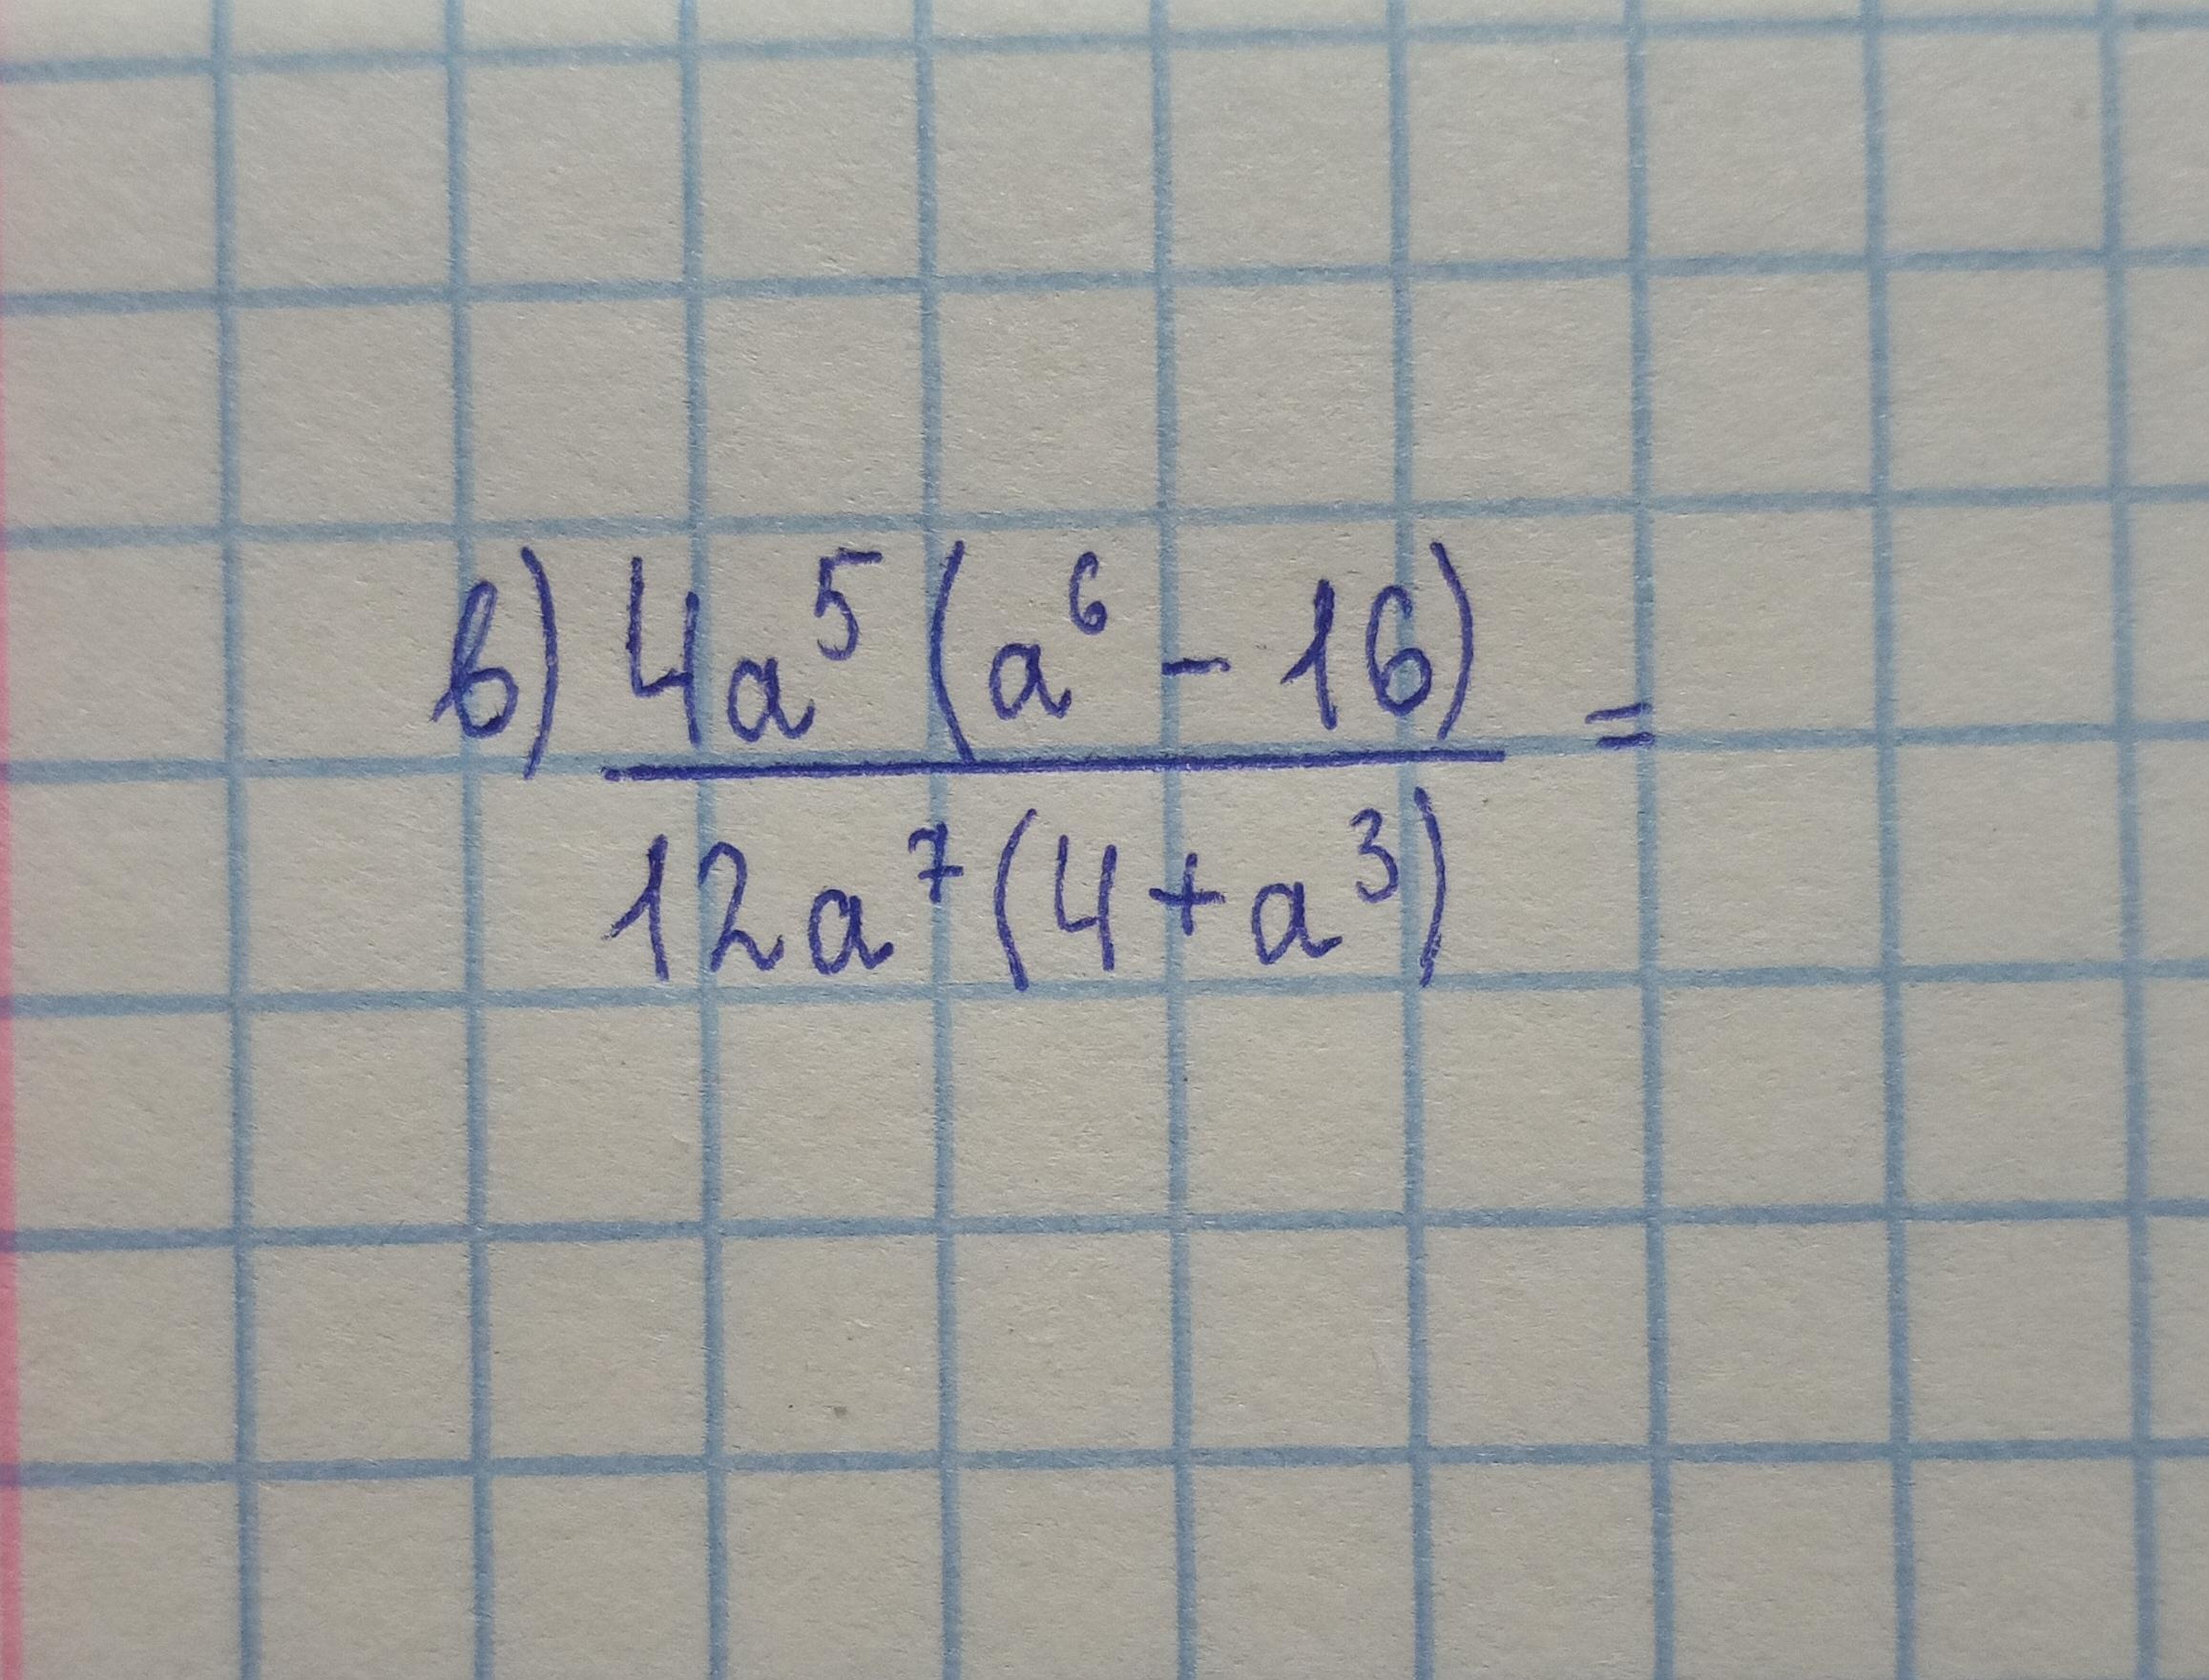 в) 4a⁵(a⁶ - 16) =
12a⁷(4 + a³)